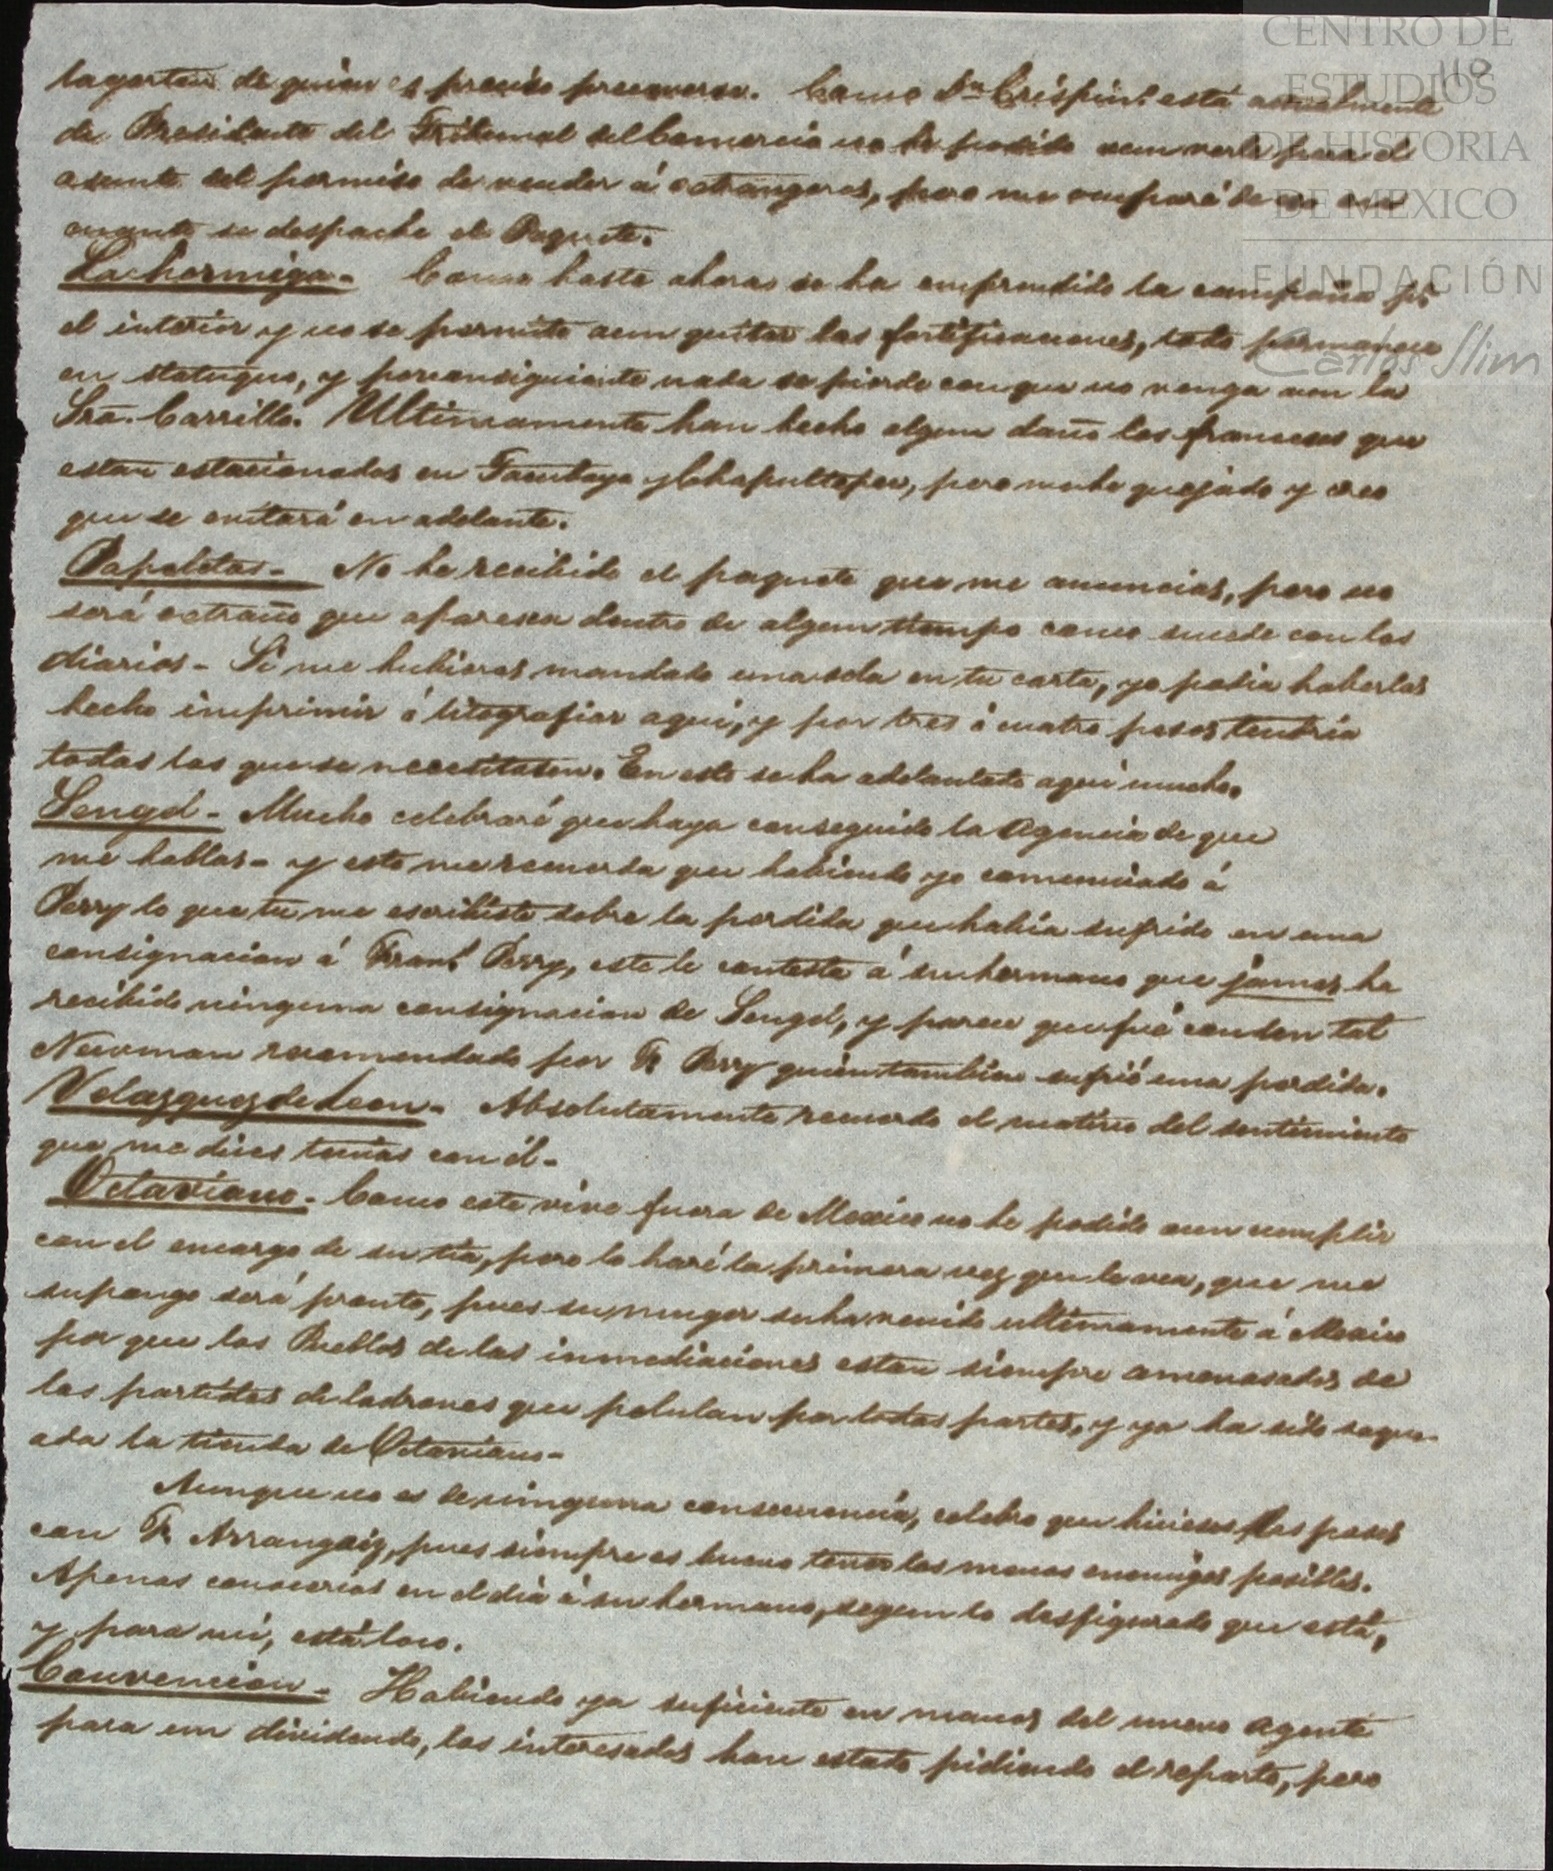 CENTRO DE
ESTUDIOS
DE HISTORIA
DE MEXICO
FUNDACIÓN
Carlos Slim
110
lagarton de quien es preciso precaverse. Como Dn Crispin! está actualmente
de Presidente del Tribunal del Comercio no he podido aun verle para el
asunto del permiso de vender á estrangeros, pero me ocuparé de
cuanto se despache el Paquete.
La hormiga - Como hasta ahora se ha emprendido la campaña pr.
el interior y no se permite aun quitar las fortificaciones, todo permanece
en statuquo, y porconsiguiente nada se pierde conque no venga aun la
Sra. Carrillo. Ultimamente han hecho algun daño los franceses que
estan estacionados en Tacubaya y Chapultepec, pero me he quejado y creo
que se evitará en adelante.
Papeletas - No he recibido el paquete que me anuncias, pero no
será estraño que aparesca dentro de algun tiempo como sucede con los
diarios - Si me hubieras mandado una sola en tu carta, yo podia haberlas
hecho imprimir ó litografiar aqui, y por tres ó cuatro pesos tendria
todas las que se necesitasen. En esto se ha adelantado aqui mucho.
Lengd - Mucho celebraré que haya conseguido la Agencia de que
me hablas - y esto me recuerda que habiendo yo comunicado á
Perry lo que tu me escribiste sobre la perdida que habia sufrido en una
consignacion á Frank Perry, este le contesta á su hermano que jamas ha
recibido ninguna consignacion de Lengd, y parece que fué con un tal
Newman recomendado por Fr Perry quien tambien sufrió una perdida.
Velazquez de Leon - Absolutamente recuerdo el motivo del sentimiento
que me dices tenias con él -
Octaviano - Como este vive fuera de Mexico no he podido aun cumplir
con el encargo de su tia, pero lo haré la primera vez que le vea, que me
supongo será pronto, pues su muger se ha venido ultimamente á Mexico
por que los Pueblos de las inmediaciones estan siempre amenasados de
las partidas de ladrones que pululan por todas partes, y ya ha sido saque-
ada la tienda de Octaviano -
Aunque no es de ninguna consecuencia, celebro que hicieses las pases
con Fr Arrangoiz, pues siempre es bueno tener los menos enemigos posibles.
Apenas conocerias en el dia á su hermano, segun lo desfigurado que está,
y para mi, está loco.
Convencion - Habiendo ya suficiente en manos del nuevo Agente
para un dividendo, los interesados han estado pidiendo el reparto, pero